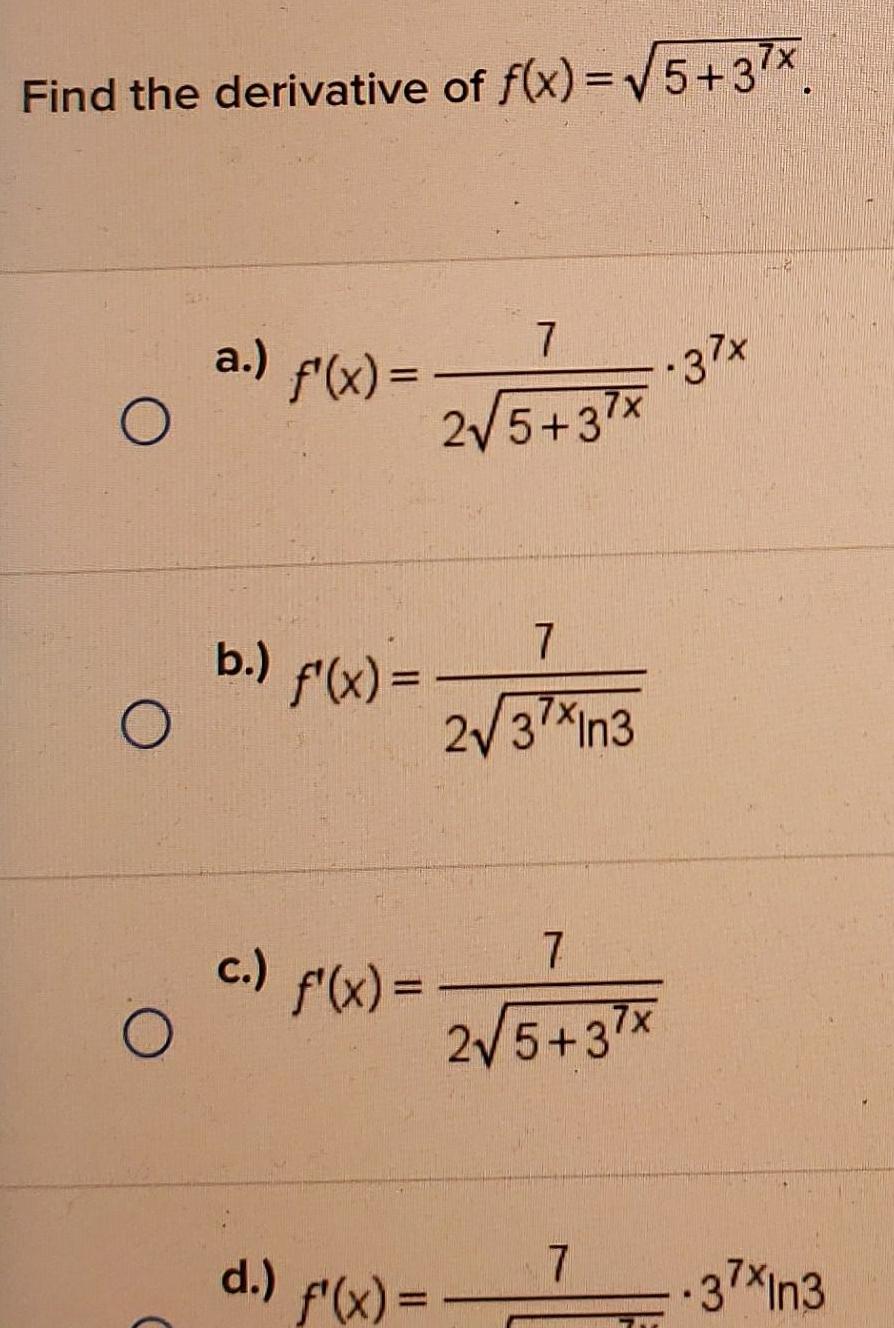 Find the derivative of f(x) = √(5 + 3^(7x)).
a.) f'(x) = 7 / (2√(5 + 3^(7x))) · 3^(7x)
b.) f'(x) = 7 / (2√(3^(7x) ln3))
c.) f'(x) = 7 / (2√(5 + 3^(7x)))
d.) f'(x) = 7 · 3^(7x) ln3